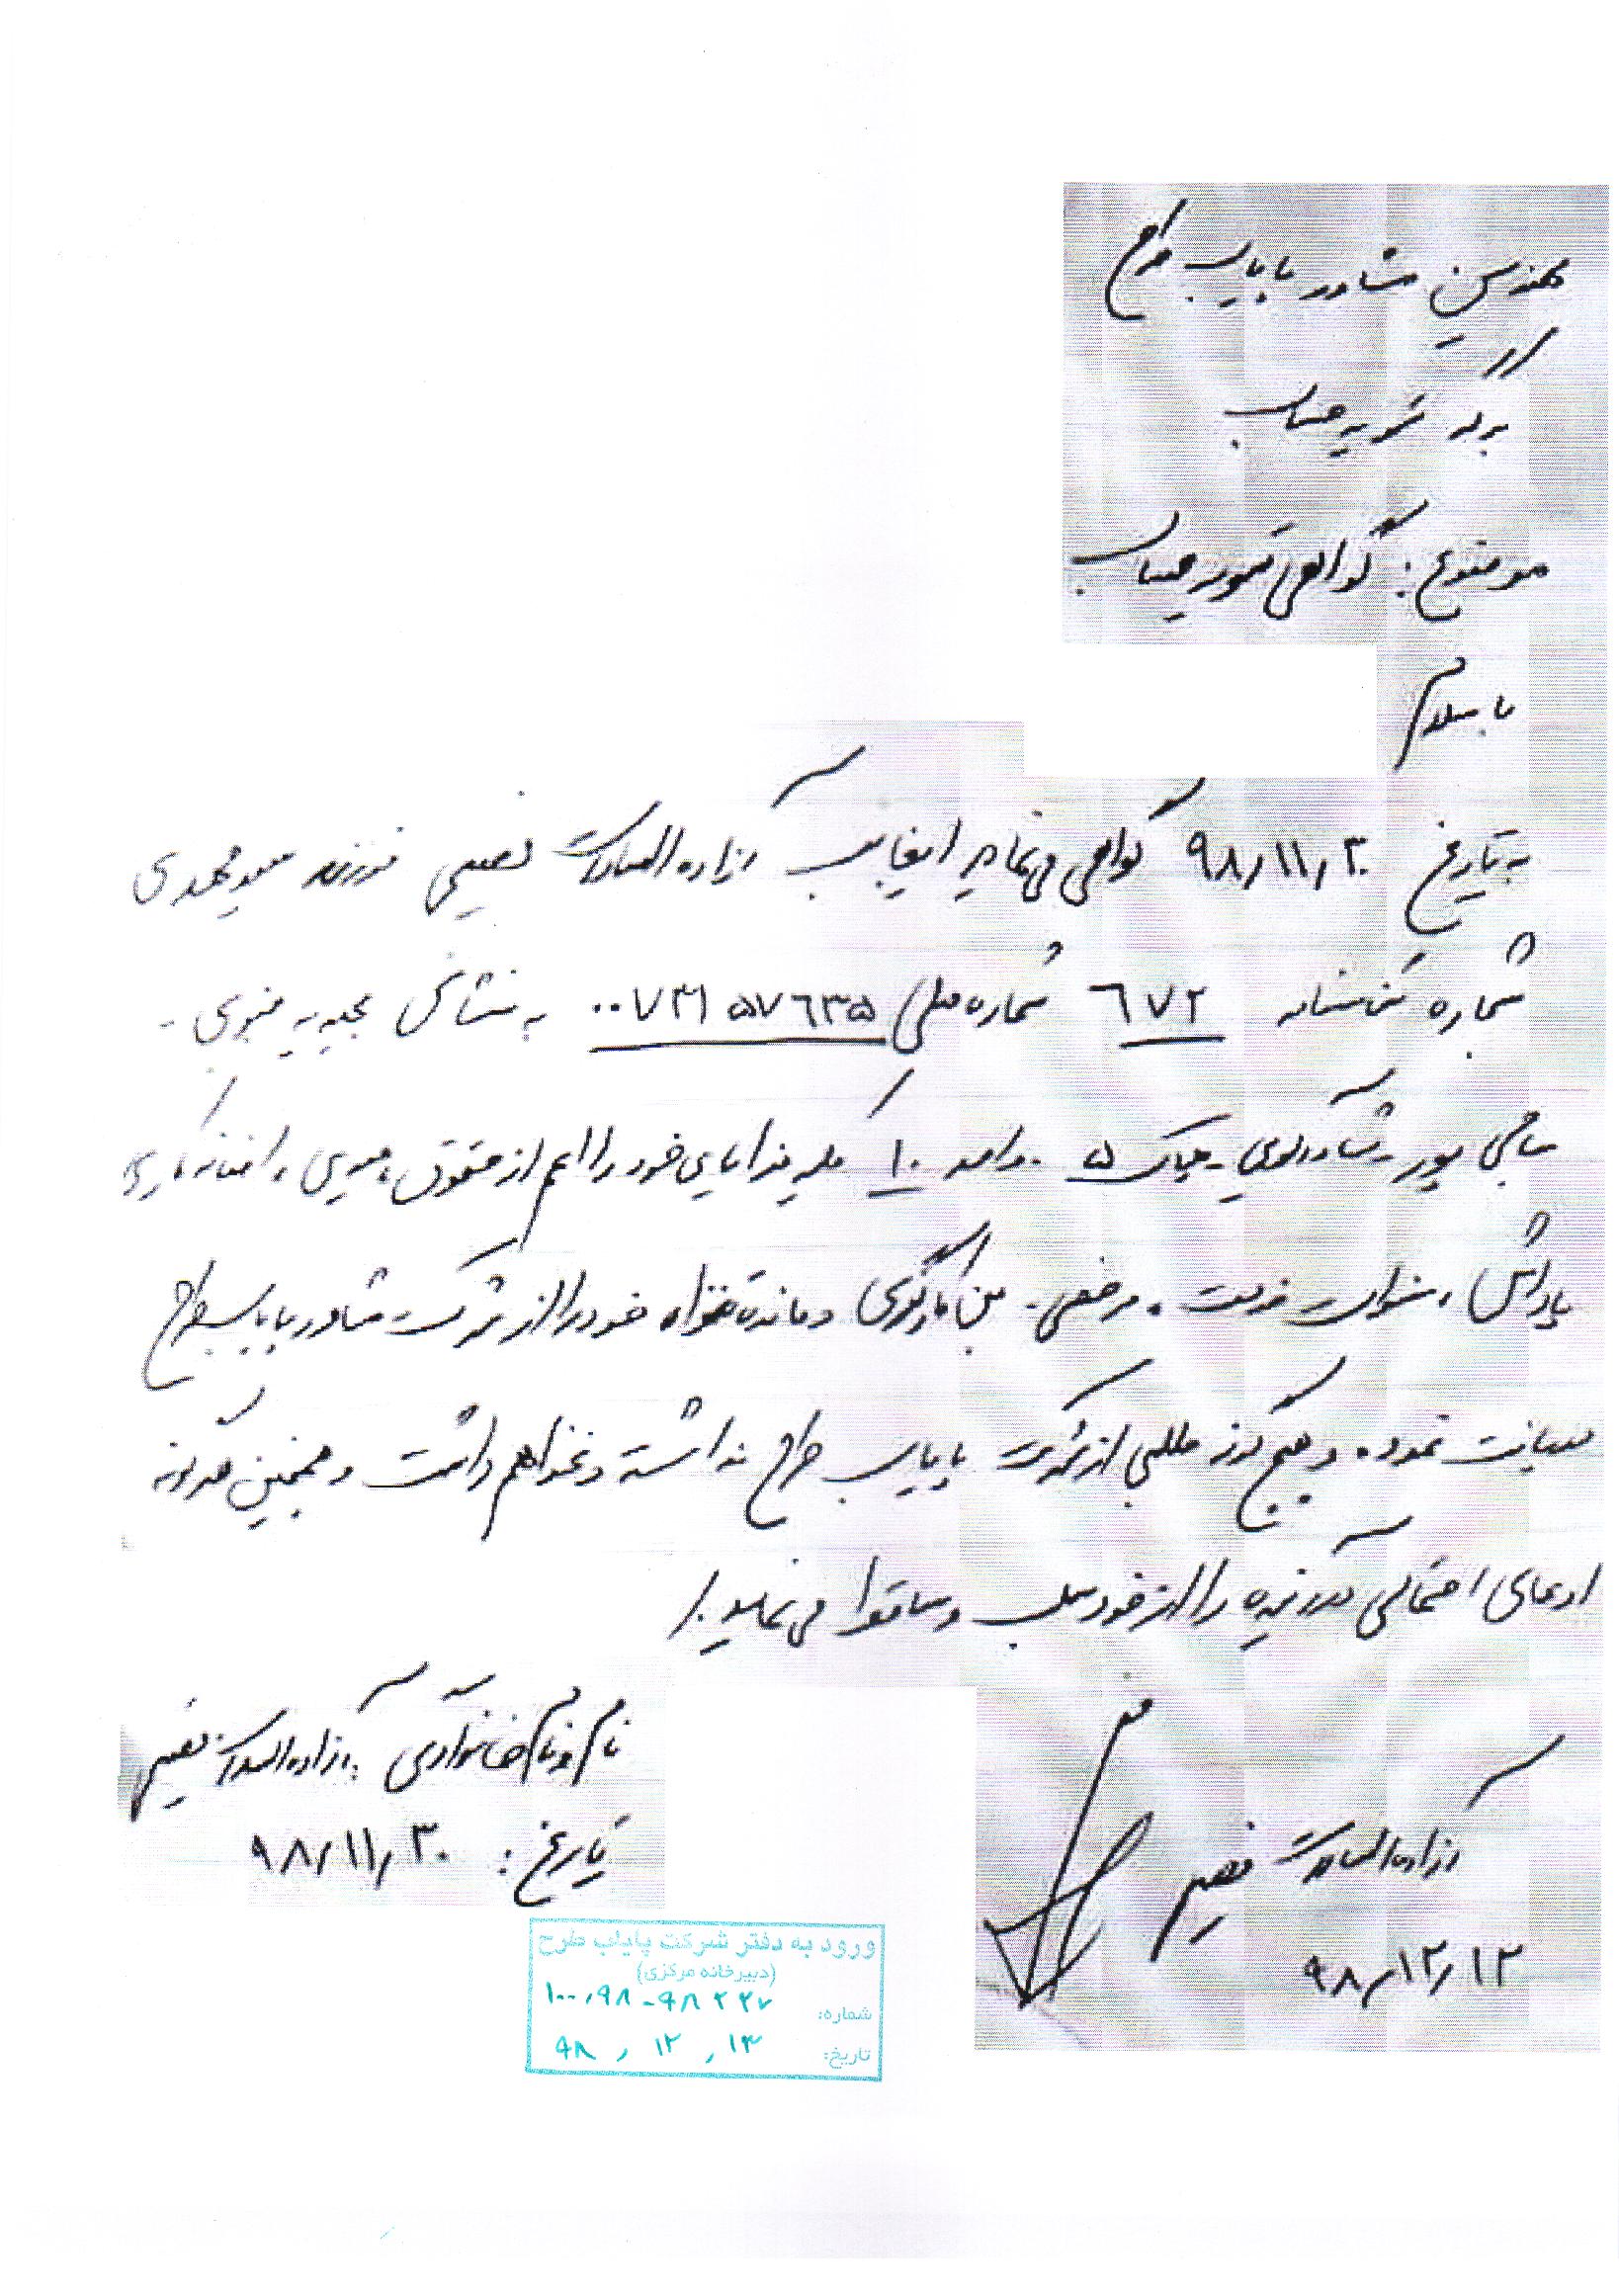 مهندسین مشاور پایاب طرح
برگه تسویه حساب
موضوع: گواهی تسویه حساب
با سلام
به تاریخ ۹۸/۱۱/۳۰ گواهی می نماید اینجانب آزاده السادات نعیمی فرزند سید مهدی
شماره شناسنامه ۶۷۲ شماره ملی به نشانی مجیدیه جنوبی -
۵ - واحد ۱۰ کلیه مزایای خود را اعم از حقوق، عیدی، اضافه کاری
پاداش، سنوات خدمت، مرخصی، بن کارگری و مانده تنخواه خود را از شرکت مشاور پایاب طرح
دریافت نموده و هیچ گونه طلبی از شرکت پایاب طرح نداشته و نخواهم داشت و همچنین هرگونه
ادعای احتمالی در آینده را از خود سلب و ساقط می نماید./
نام و نام خانوادگی: آزاده السادات نعیمی
تاریخ: ۹۸/۱۱/۳۰
آزاده السادات نعیمی
۹۸/۱۲/۱۳
ورود به دفتر شرکت پایاب طرح
(دبیرخانه مرکزی)
شماره: ۱۰۰،۹۸-۹۸۲۲۷
تاریخ: ۹۸/۱۲/۱۳